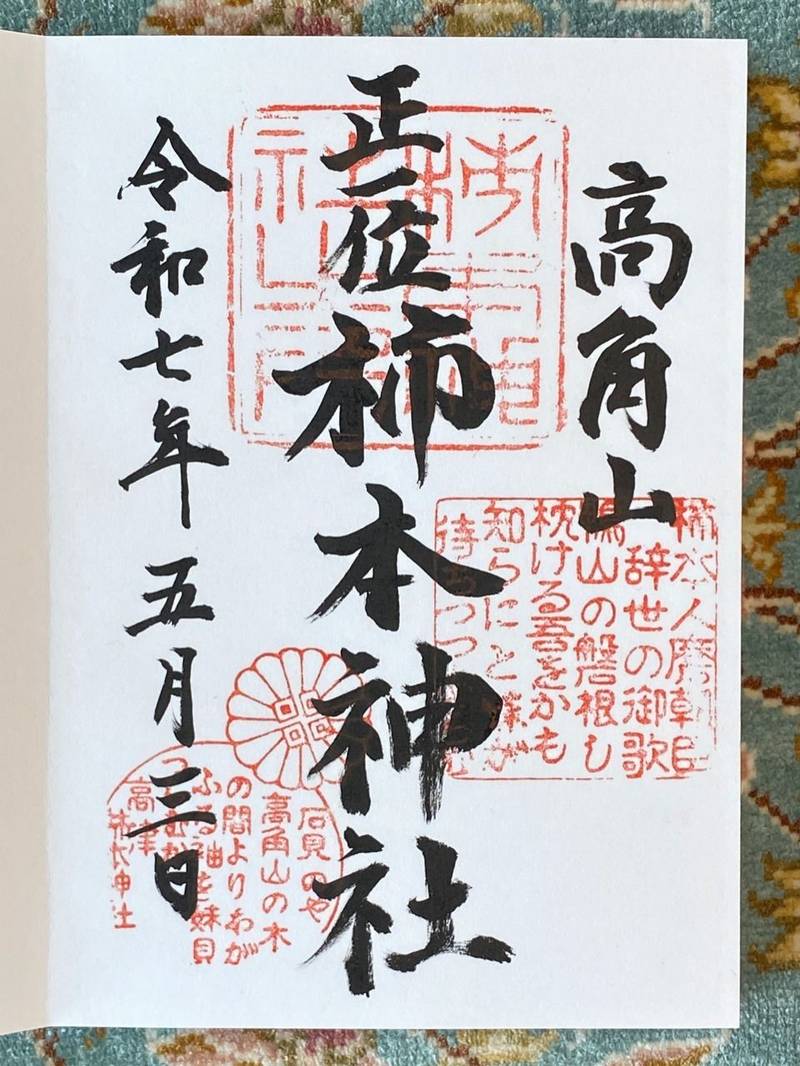 高角山
柿本人麿朝臣
辞世の御歌
鴨山の磐根し
枕ける吾をかも
知らにと妹が
待ちつつ
正一位柿本神社
石見のや
高角山の木
の間よりわが
ふる袖を妹見
高津
柿本神社
令和七年五月三日